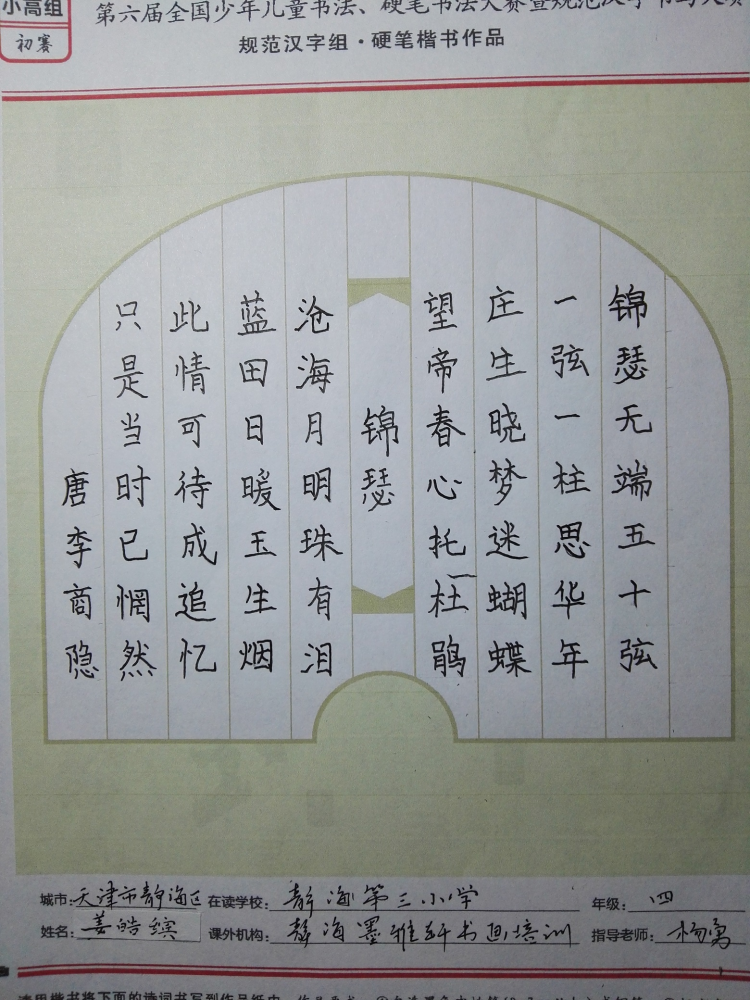 小高组
初赛
第六届全国少年儿童书法、硬笔书法大赛暨规范汉字书写大赛
规范汉字组·硬笔楷书作品
锦瑟无端五十弦
一弦一柱思华年
庄生晓梦迷蝴蝶
望帝春心托杜鹃
锦瑟
沧海月明珠有泪
蓝田日暖玉生烟
此情可待成追忆
只是当时已惘然
唐李商隐
城市:天津市静海区 在读学校:静海第三小学 年级:四
姓名:姜皓缤 课外机构:静海墨雅轩书画培训 指导老师:杨勇